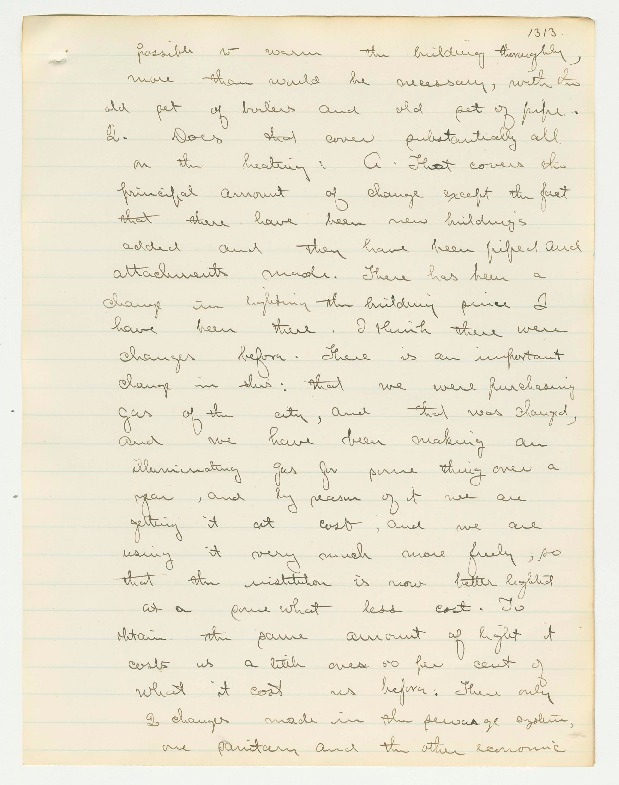 1313.
possible to warm the building thoroughly,
more than would be necessary, with the
old set of boilers and old set of pipe.
Q. Does that cover substantially all
on the heating? A. That covers the
principal amount of change except the fact
that there have been new buildings
added and they have been piped and
attachments made. There has been a
change in lighting the building since I
have been there. I think there were
changes before. There is an important
change in this: that we were purchasing
gas of the city, and that was changed,
and we have been making an
illuminating gas for some thing over a
year, and by reason of it we are
getting it at cost, and we are
using it very much more freely, so
that the institution is now better lighted
at a some what less cost. To
obtain the same amount of light it
costs us a little over 50 per cent of
what it cost us before. There only
2 changes made in the sewage system,
one sanitary and the other economic